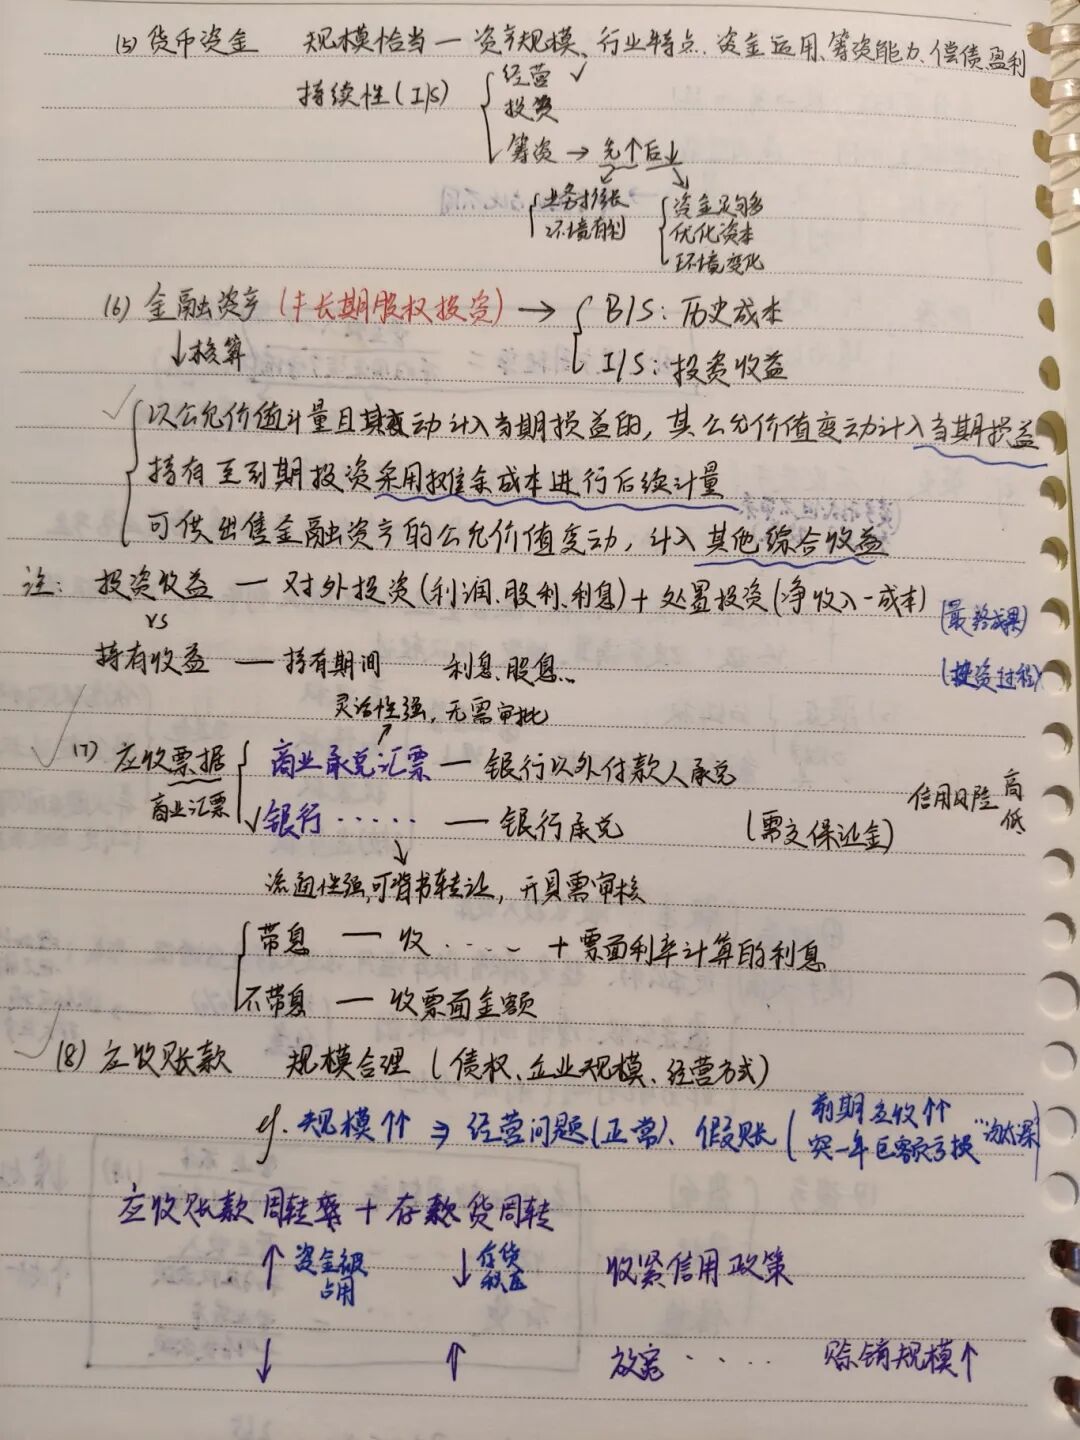 (5) 货币资金 规模恰当 — 资产规模、行业特点、资金运用、筹资能力、偿债、盈利
持续性(I/S) { 经营 ✓
投资
筹资 → 先↑后↓
{ 业务扩张 { 资金足够
环境有利 优化资本
环境变化
(6) 金融资产 (丰长期股权投资) → { B/S: 历史成本
↓核算 I/S: 投资收益
✓ { 以公允价值计量且其变动计入当期损益的, 其公允价值变动计入当期损益
持有至到期投资采用摊余成本进行后续计量
可供出售金融资产的公允价值变动, 计入其他综合收益
注: 投资收益 — 对外投资(利润、股利、利息) + 处置投资(净收入-成本) (最终成果)
vs
持有收益 — 持有期间 利息、股息... (投资过程)
灵活性强, 无需审批
✓ (7) 应收票据 { 商业承兑汇票 — 银行以外付款人承兑
商业汇票 信用风险 高
银行 ····· — 银行承兑 (需交保证金) 低
流通性强,可背书转让, 开具需审核
{ 带息 — 收 ···· + 票面利率计算的利息
不带息 — 收票面金额
✓ (8) 应收账款 规模合理 (债权、企业规模、经营方式)
ef. 规模↑↑ ⇒ 经营问题(正常)、假账 ( 前期应收↑↑
突一年巨额亏损 "洗大澡")
应收账款周转率 + 存款货周转
↑ 资金被 ↓ 存货 收紧信用政策
占用 积压
↓ ↑ 放宽 ···· 赊销规模↑